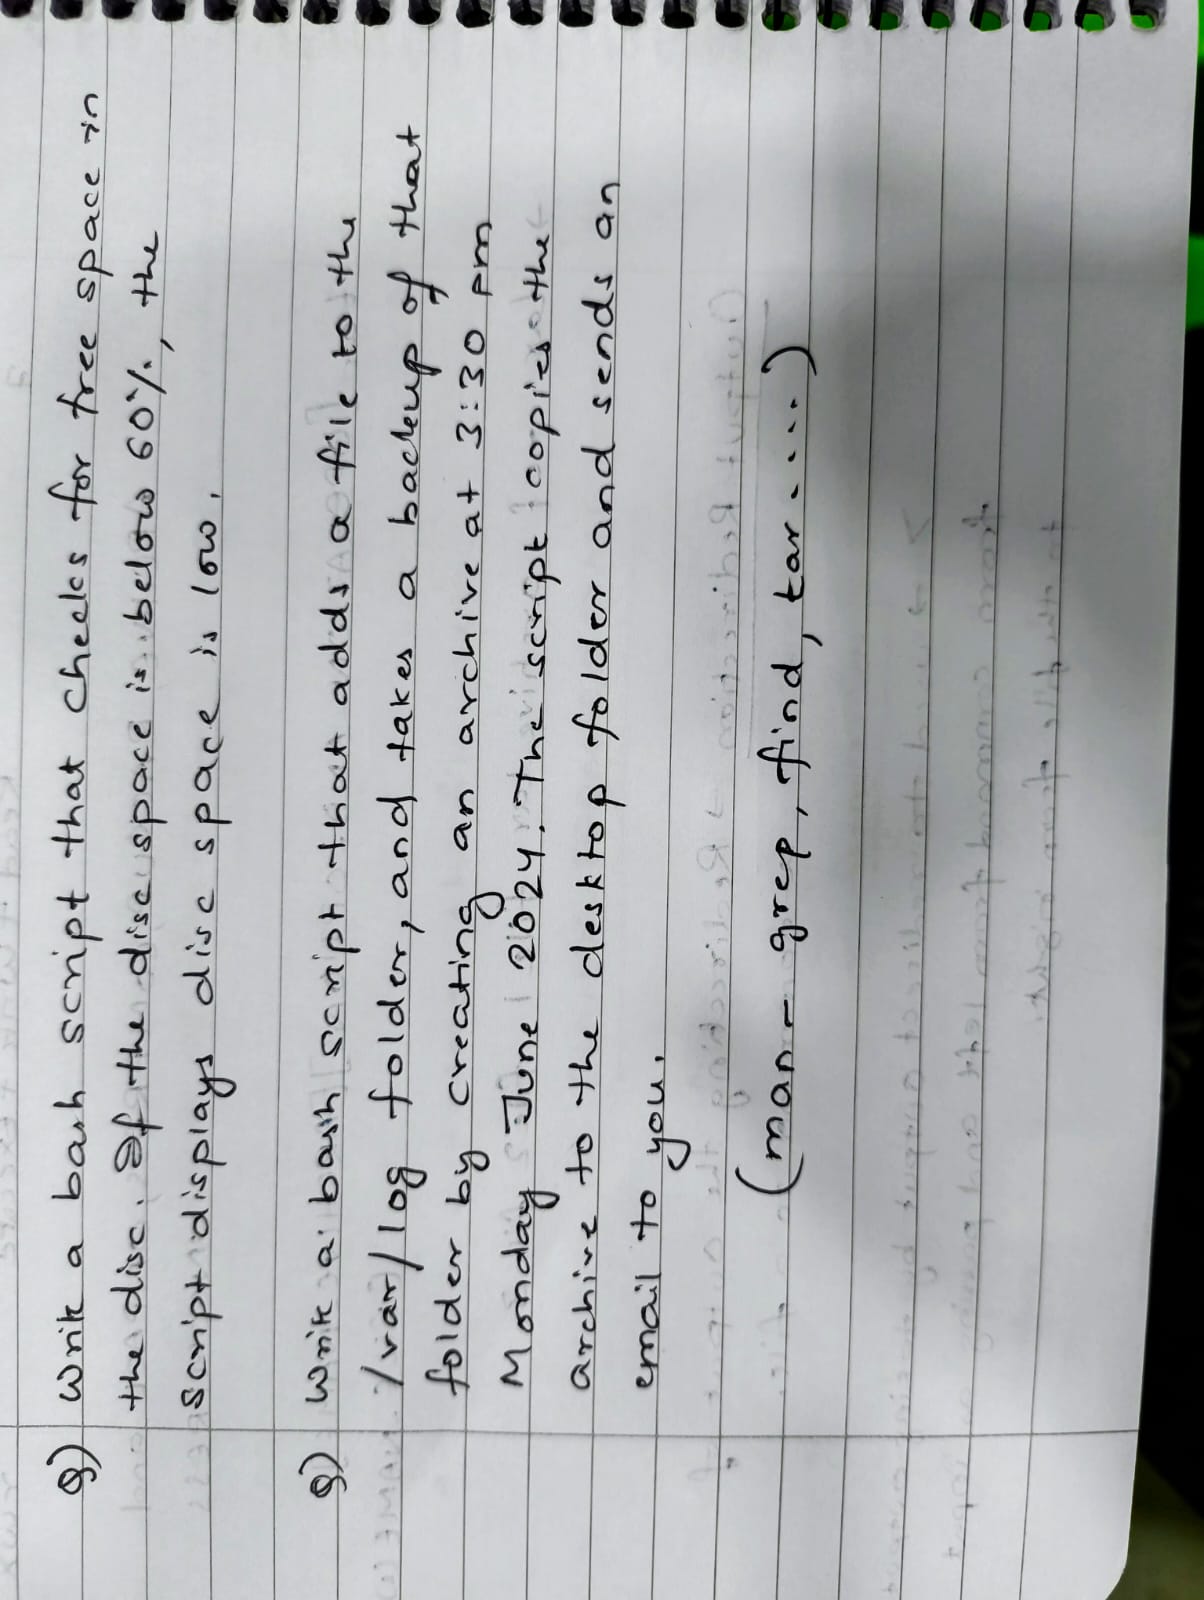 Q) Write a bash script that checks for free space in
the disc. If the disc space is below 60%, the
script displays disc space is low.
Q) Write a bash script that adds a file to the
/var/log folder, and takes a backup of that
folder by creating an archive at 3:30 pm
Monday June 2024. The script copies the
archive to the desktop folder and sends an
email to you.
(man - grep, find, tar ....)